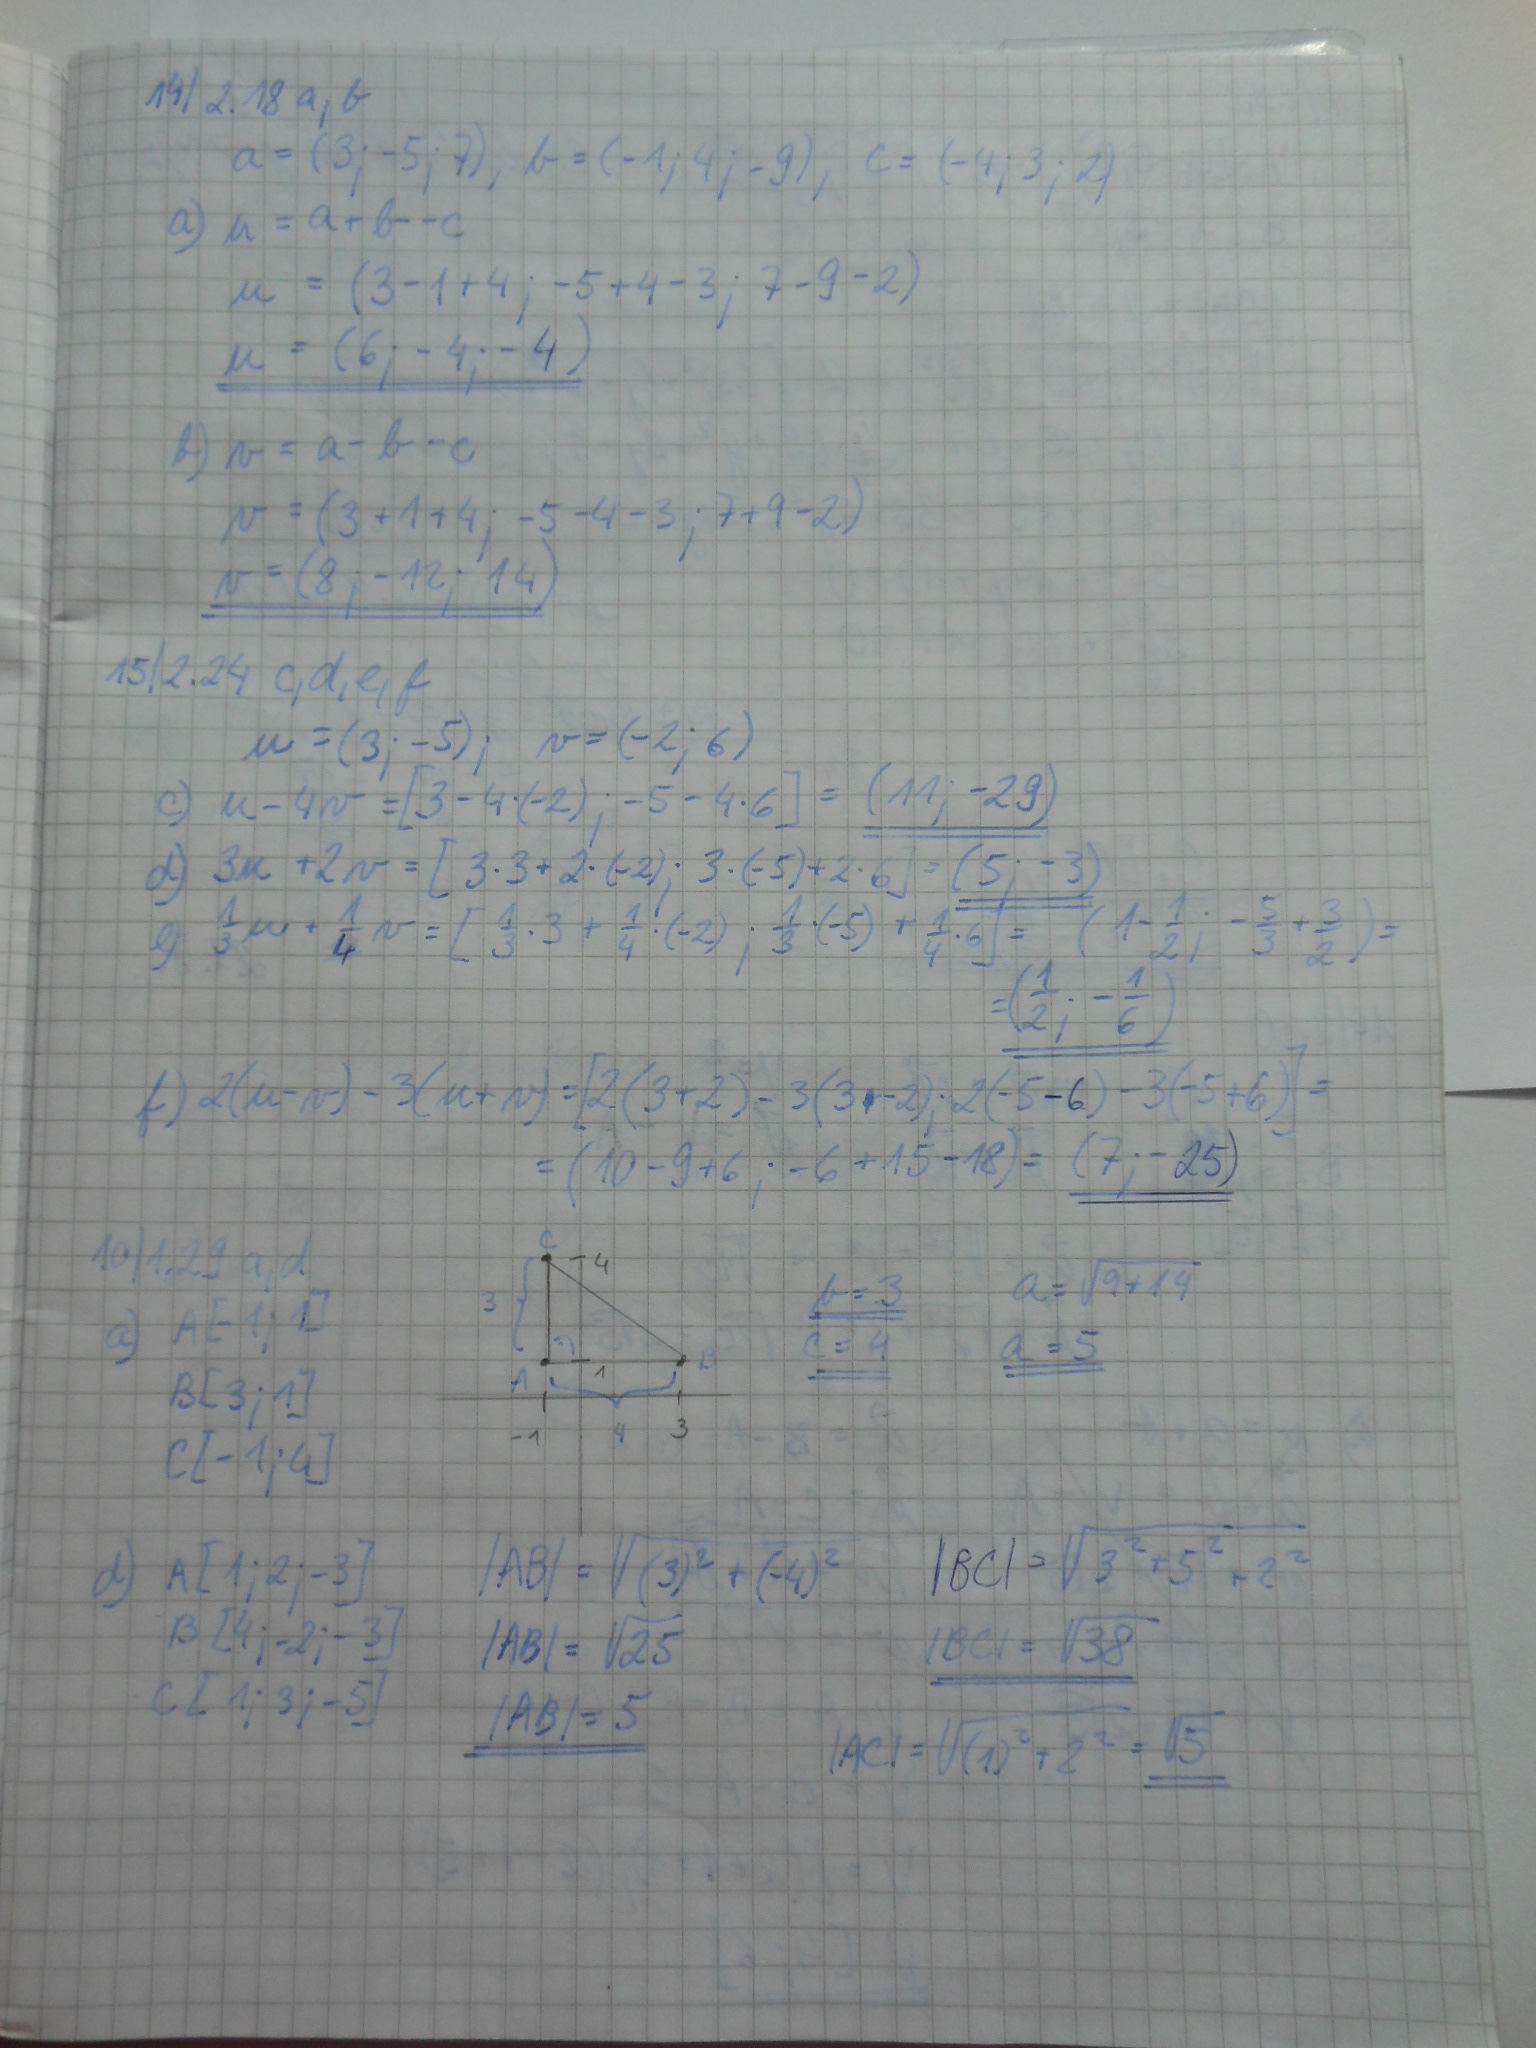 14/ 2.18 a, b
a = (3; -5; 7), b = (-1; 4; -9), c = (-4; 3; 2)
a) u = a + b - c
u = (3-1+4; -5+4-3; 7-9-2)
u = (6; -4; -4)
b) v = a - b - c
v = (3+1+4; -5-4-3; 7+9-2)
v = (8; -12; 14)
15/2.24 c, d, e, f
u = (3; -5); v = (-2; 6)
c) u - 4v = [3-4·(-2); -5-4·6] = (11; -29)
d) 3u + 2v = [3·3+2·(-2); 3·(-5)+2·6] = (5; -3)
e) 1/3 u + 1/4 v = [1/3·3 + 1/4·(-2); 1/3·(-5) + 1/4·6] = (1-1/2; -5/3+3/2) =
= (1/2; -1/6)
f) 2(u-v) - 3(u+v) = [2(3+2) - 3(3+-2); 2(-5-6) - 3(-5+6)] =
= (10-9+6; -6+15-18) = (7; -25)
10/1.29 a, d
a) A[-1; 1]
B[3; 1]
C[-1; 4]
C
4
3
A
1
B
-1
4
3
b = 3
c = 4
a = √9+14
a = 5
d) A[1; 2; -3]
B[4; -2; -3]
C[1; 3; -5]
|AB| = √(3)²+(-4)²
|AB| = √25
|AB| = 5
|BC| = √3²+5²+2²
|BC| = √38
|AC| = √(1)²+2² = √5